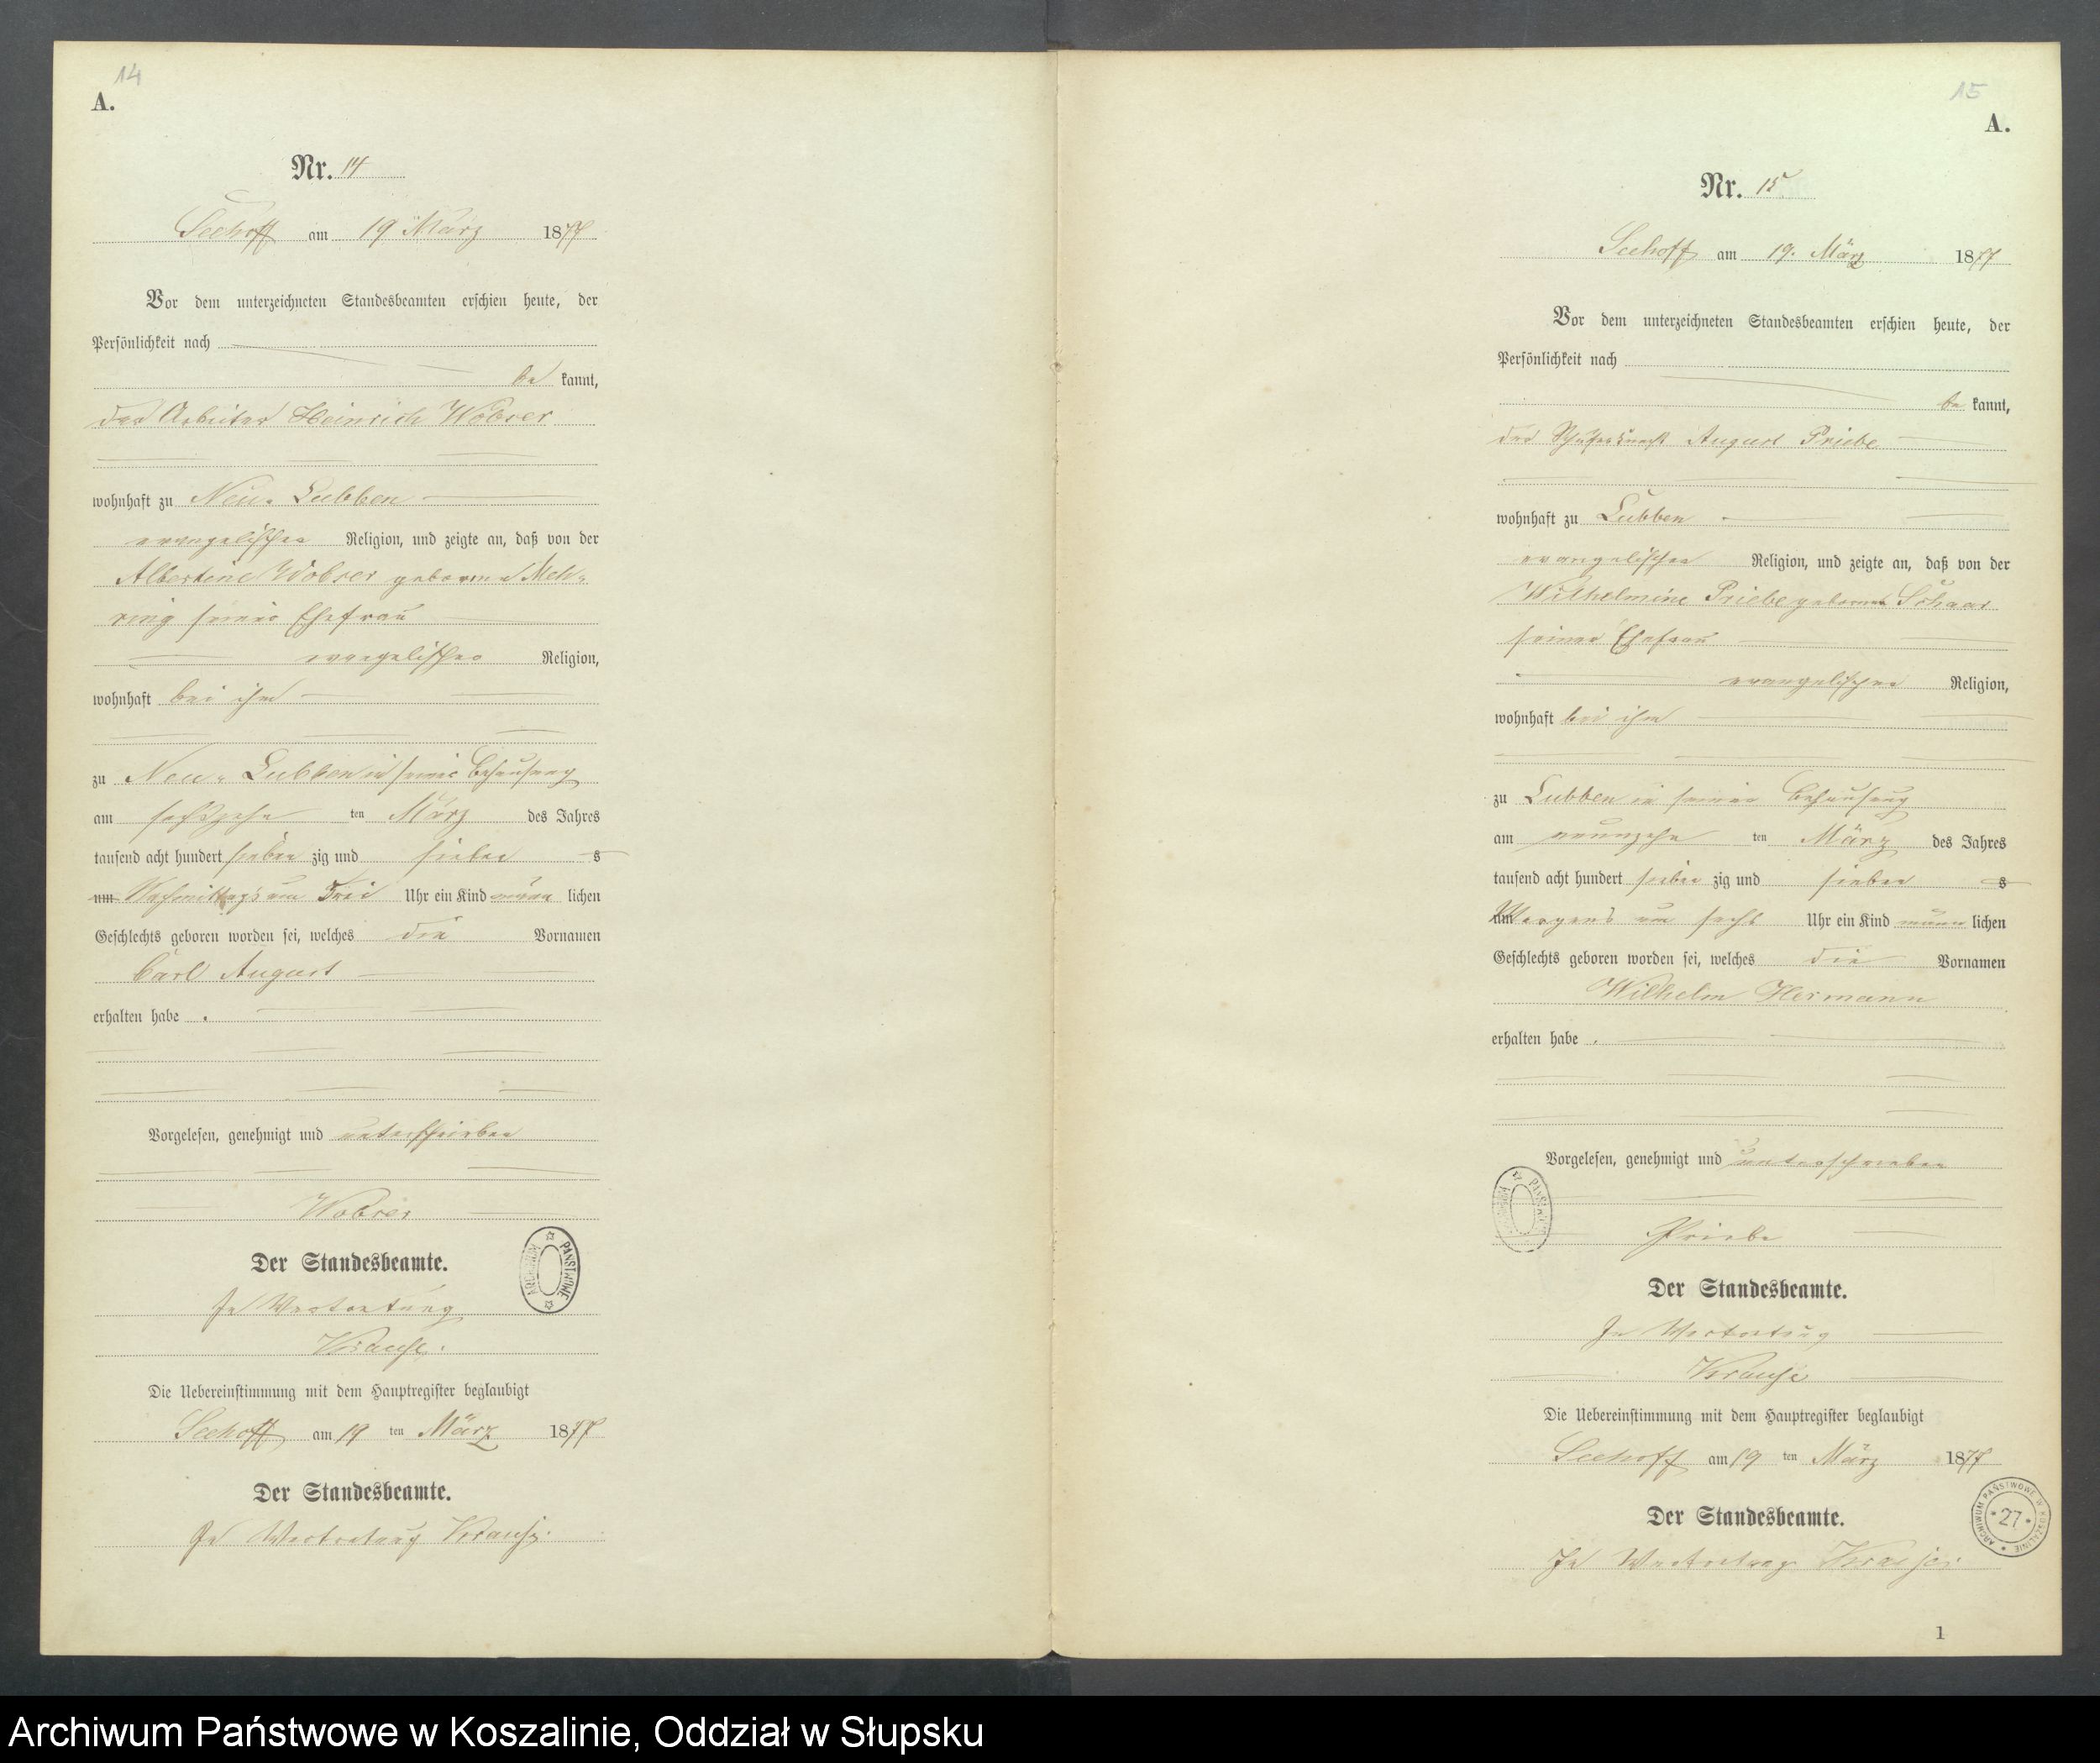 14
A.
Nr. 14
Seehoff am 19 März 1877
Vor dem unterzeichneten Standesbeamten erschien heute, der
Persönlichkeit nach
be kannt,
der Arbeiter Heinrich Wobser
wohnhaft zu Neu-Lubben
evangelischer Religion, und zeigte an, daß von der
Albertine Wobser geborene Meh-
ring seiner Ehefrau
evangelischer Religion,
wohnhaft bei ihm
zu Neu-Lubben in seiner Behausung
am sechszehn ten März des Jahres
tausend acht hundert sieben zig und sieben s
um Nachmittags um Drei Uhr ein Kind männ lichen
Geschlechts geboren worden sei, welches die Vornamen
Carl August
erhalten habe .
Vorgelesen, genehmigt und unterschrieben
Wobser
ARCHIWUM PAŃSTWOWE
Der Standesbeamte.
In Vertretung
Krause.
Die Uebereinstimmung mit dem Hauptregister beglaubigt
Seehoff am 19 ten März 1877
Der Standesbeamte.
In Vertretung Krause.
15
A.
Nr. 15
Seehoff am 19. März 1877
Vor dem unterzeichneten Standesbeamten erschien heute, der
Persönlichkeit nach
be kannt,
der Schäferknecht August Priebe
wohnhaft zu Lubben
evangelischer Religion, und zeigte an, daß von der
Wilhelmine Priebe geborene Schaar
seiner Ehefrau
evangelischer Religion,
wohnhaft bei ihm
zu Lubben in seiner Behausung
am neunzehn ten März des Jahres
tausend acht hundert sieben zig und sieben s
um Morgens um sechs Uhr ein Kind männ lichen
Geschlechts geboren worden sei, welches die Vornamen
Wilhelm Hermann
erhalten habe .
Vorgelesen, genehmigt und unterschrieben
Priebe
Der Standesbeamte.
In Vertretung
Krause
Die Uebereinstimmung mit dem Hauptregister beglaubigt
Seehoff am 19 ten März 1877
Der Standesbeamte.
ARCHIWUM PAŃSTWOWE W KOSZALINIE * 27 *
In Vertretung Krause.
1
Archiwum Państwowe w Koszalinie, Oddział w Słupsku